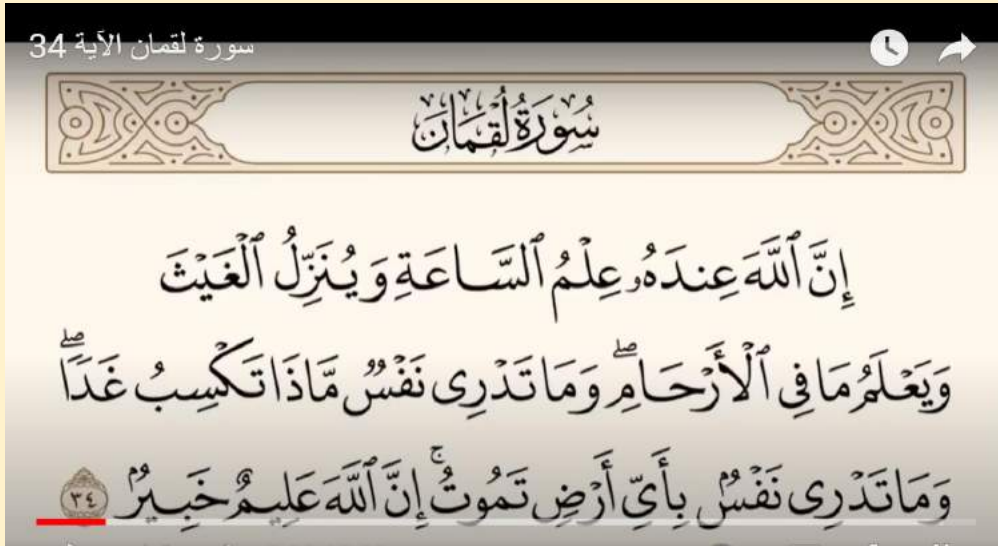 سورة لقمان الآية 34
سُورَةُ لُقْمَانَ
إِنَّ ٱللَّهَ عِندَهُۥ عِلْمُ ٱلسَّاعَةِ وَيُنَزِّلُ ٱلْغَيْثَ
وَيَعْلَمُ مَا فِي ٱلْأَرْحَامِۖ وَمَا تَدْرِي نَفْسٌ مَّاذَا تَكْسِبُ غَدًاۖ
وَمَا تَدْرِي نَفْسٌۢ بِأَيِّ أَرْضٍ تَمُوتُۚ إِنَّ ٱللَّهَ عَلِيمٌ خَبِيرٌۢ ٣٤